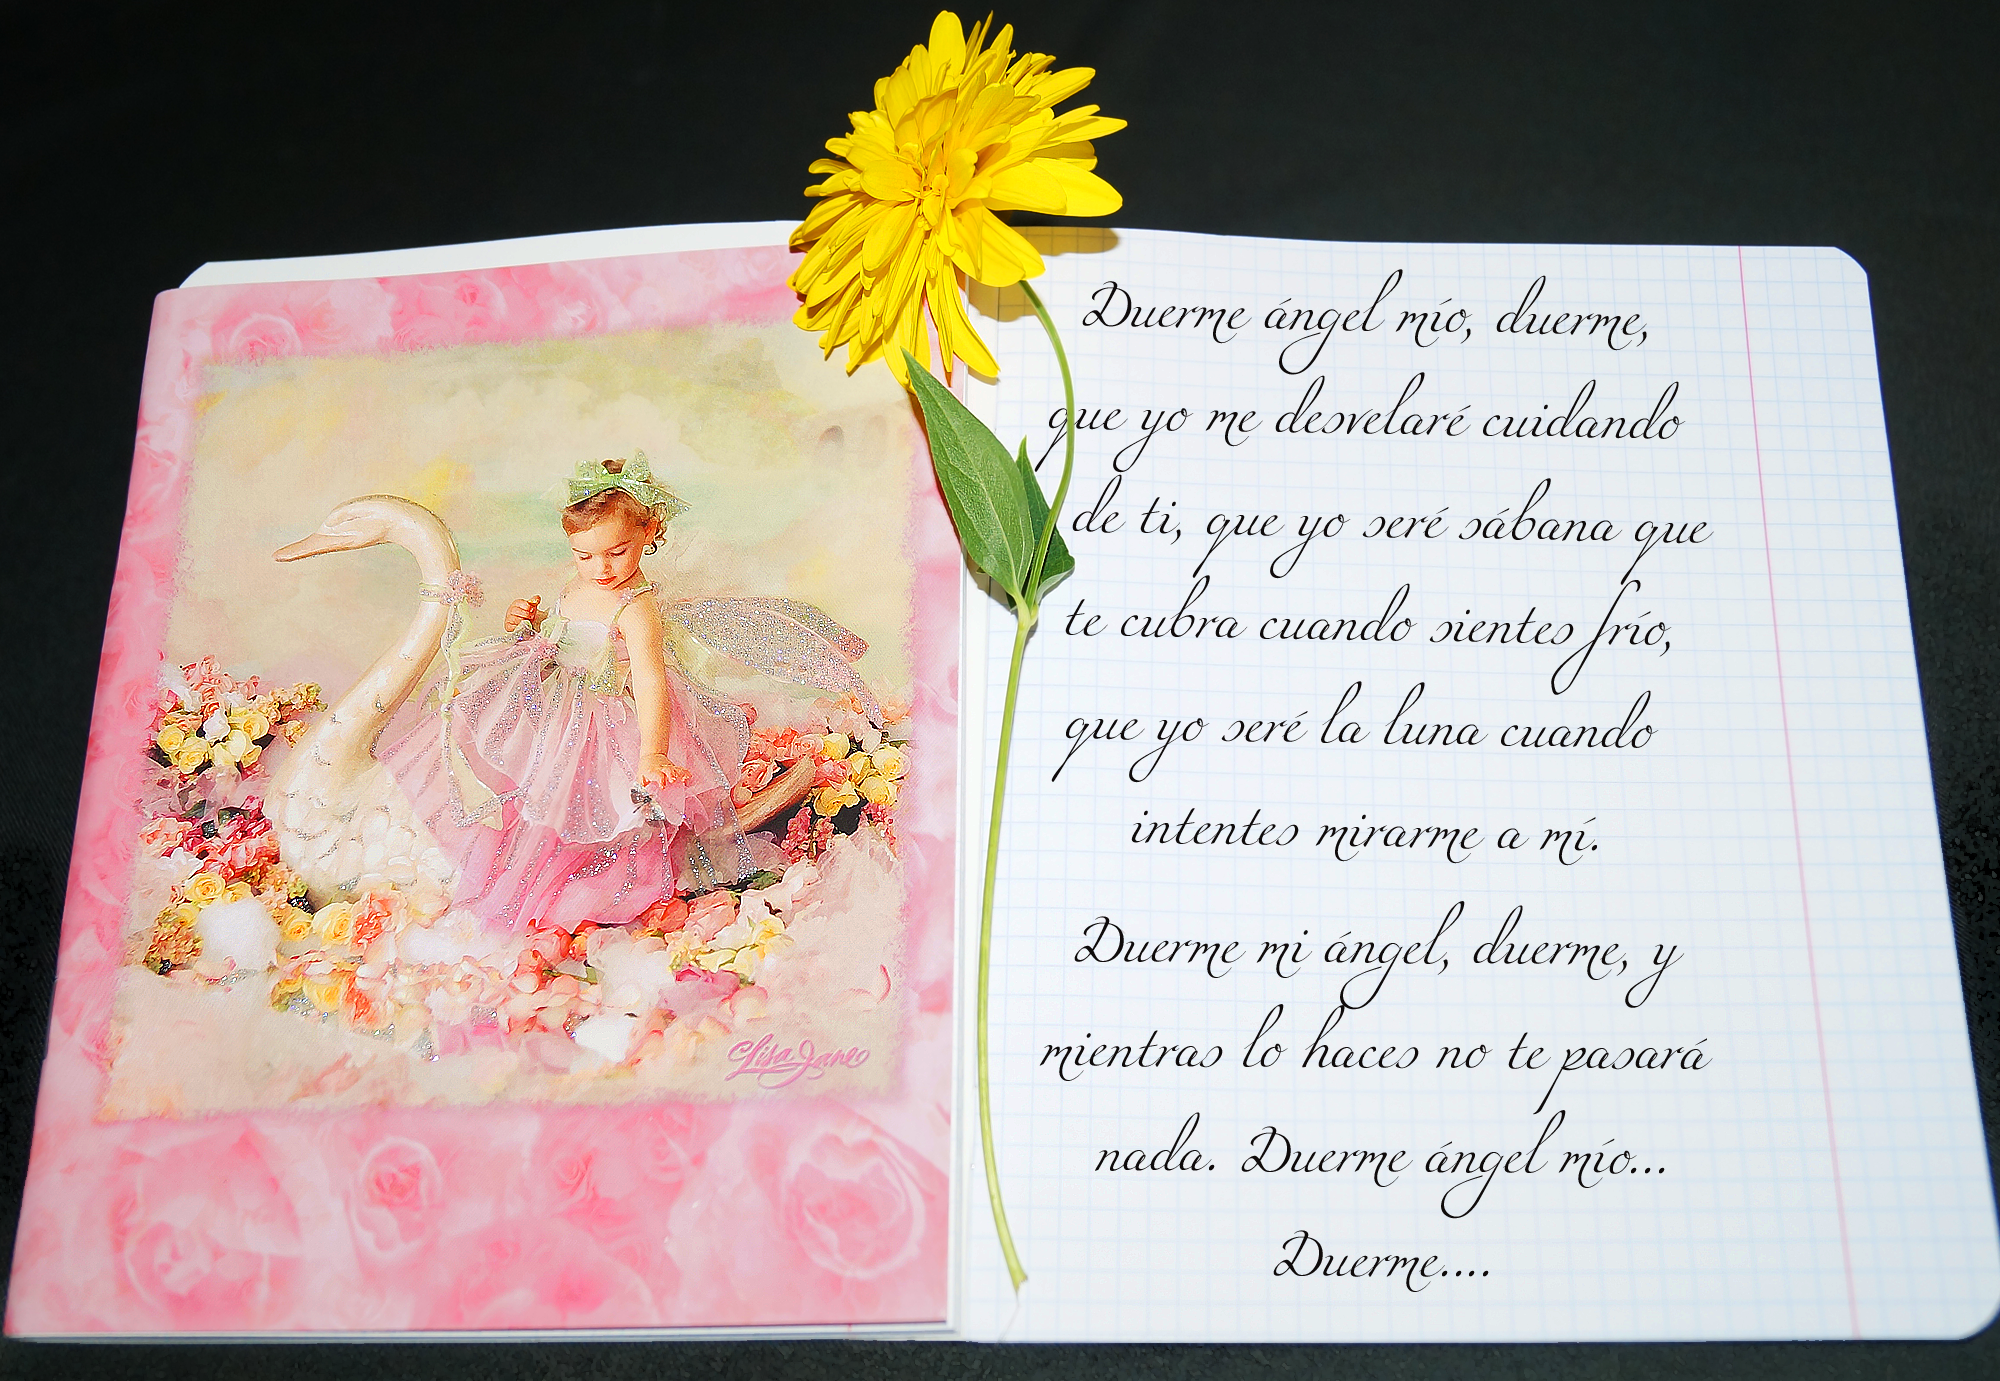 Duerme ángel mío, duerme,
que yo me desvelaré cuidando
de ti, que yo seré sábana que
te cubra cuando sientes frío,
que yo seré la luna cuando
intentes mirarme a mí.
Duerme mi ángel, duerme, y
mientras lo haces no te pasará
nada. Duerme ángel mío...
Duerme....
Lisa Jane